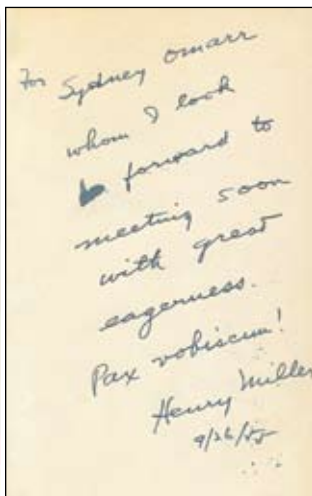 For Sydney Omarr
whom I look
forward to
meeting soon
with great
eagerness.
Pax vobiscum!
Henry Miller
9/26/55